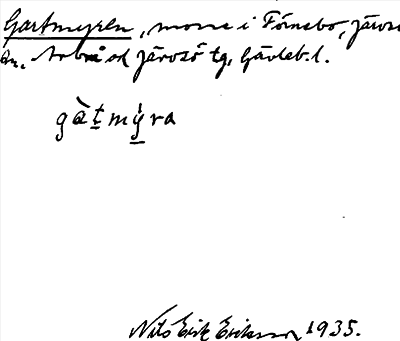 Gartmyren, mosse i Förnebo, Järvsö
sn. Arbrå och Järvsö tg, Gävleb. l.
gàt̲mỳ̲ra
Nils Erik Eriksson 1935.